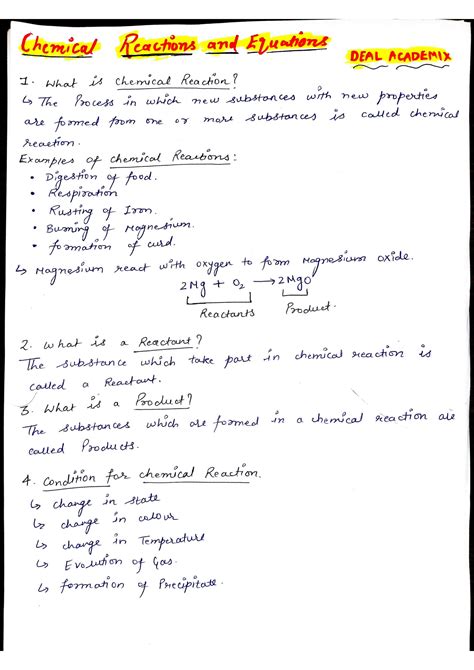 Chemical Reactions and Equations
DEAL ACADEMIX
1. What is chemical Reaction?
↳ The Process in which new substances with new properties
are formed from one or more substances is called chemical
reaction.
Examples of chemical Reactions:
• Digestion of food.
• Respiration
• Rusting of Iron.
• Burning of Magnesium.
• formation of curd.
↳ Magnesium react with oxygen to form Magnesium oxide.
2Mg + O₂ → 2MgO
Reactants Product.
2. What is a Reactant?
The substance which take part in chemical reaction is
called a Reactant.
3. What is a Product?
The substances which are formed in a chemical reaction are
called Products.
4. Condition for chemical Reaction.
↳ change in state
↳ change in colour
↳ change in Temperature
↳ Evolution of Gas.
↳ formation of Precipitate.